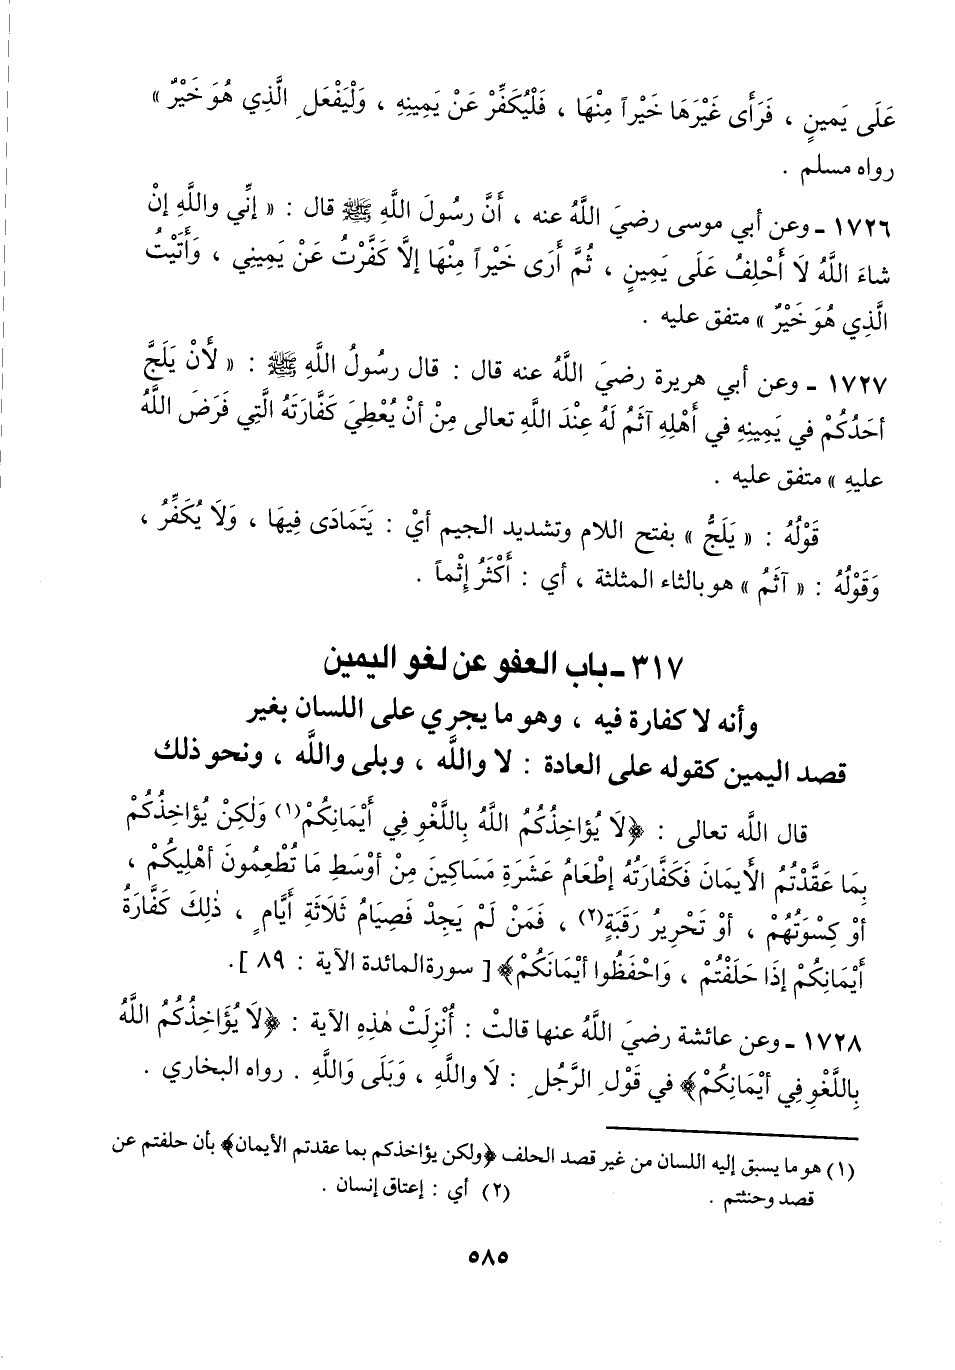 عَلَى يَمينٍ ، فَرَأَى غَيْرَهَا خَيْراً مِنْهَا ، فَلْيُكَفِّرْ عَنْ يَمِينِهِ ، وَلْيَفْعَلِ الَّذِي هُوَ خَيْرٌ »
رواه مسلم .
١٧٢٦ ـ وعن أبي موسى رضيَ اللَّهُ عنه ، أَنَّ رسُولَ اللَّهِ ﷺ قال : « إنِّي واللَّهِ إنْ
شاءَ اللَّهُ لَا أَحْلِفُ عَلَى يَمِينٍ ، ثُمَّ أَرَى خَيْراً مِنْهَا إلَّا كَفَّرْتُ عَنْ يَمِينِي ، وَأَتَيْتُ
الَّذِي هُوَ خَيْرٌ » متفق عليه .
١٧٢٧ ـ وعن أبي هريرة رضيَ اللَّهُ عنه قال : قال رسُولُ اللَّهِ ﷺ : « لَأنْ يَلَجَّ
أحَدُكُمْ في يَمِينِهِ في أَهْلِهِ آثَمُ لَهُ عِنْدَ اللَّهِ تعالى مِنْ أنْ يُعْطِيَ كَفَّارَتَهُ الَّتِي فَرَضَ اللَّهُ
عليهِ » متفق عليه .
قَوْلُهُ : « يَلَجُّ » بفتح اللام وتشديد الجيم أيْ : يَتَمَادَى فِيهَا ، وَلَا يُكَفِّرُ ،
وَقَوْلُهُ : « آثَمُ » هو بالثاء المثلثة ، أي : أَكْثَرُ إِثْماً .
٣١٧ ـ باب العفو عن لغو اليمين
وأنه لا كفارة فيه ، وهو ما يجري على اللسان بغير
قصد اليمين كقوله على العادة : لا واللَّه ، وبلى واللَّه ، ونحو ذلك
قال اللَّه تعالى : ﴿لَا يُؤاخِذُكُمُ اللَّهُ بِاللَّغْوِ فِي أَيْمَانِكُمْ(١) وَلٰكِنْ يُؤاخِذُكُمْ
بِمَا عَقَّدْتُمُ الأَيمَانَ فَكَفَّارَتُهُ إطْعَامُ عَشَرَةِ مَسَاكِينَ مِنْ أوْسَطِ مَا تُطْعِمُونَ أهْلِيكُمْ ،
أوْ كِسْوَتُهُمْ ، أوْ تَحْرِيرُ رَقَبَةٍ(٢) ، فَمَنْ لَمْ يَجِدْ فَصِيَامُ ثَلَاثَةِ أَيَّامٍ ، ذٰلِكَ كَفَّارَةُ
أَيْمَانِكُمْ إذَا حَلَفْتُمْ ، وَاحْفَظُوا أيْمَانَكُمْ﴾ [ سورة المائدة الآية : ٨٩ ].
١٧٢٨ ـ وعن عائشة رضيَ اللَّهُ عنها قالتْ : أُنْزِلَتْ هٰذِهِ الآية : ﴿لَا يُؤَاخِذُكُمُ اللَّهُ
بِاللَّغْوِ فِي أيْمَانِكُمْ﴾ في قَوْلِ الرَّجُلِ : لَا واللَّهِ ، وَبَلَى وَاللَّهِ . رواه البخاري .
(١) هو ما يسبق إليه اللسان من غير قصد الحلف ﴿ولكن يؤاخذكم بما عقدتم الأيمان﴾ بأن حلفتم عن
قصد وحنثتم . (٢) أي : إعتاق إنسان .
٥٨٥